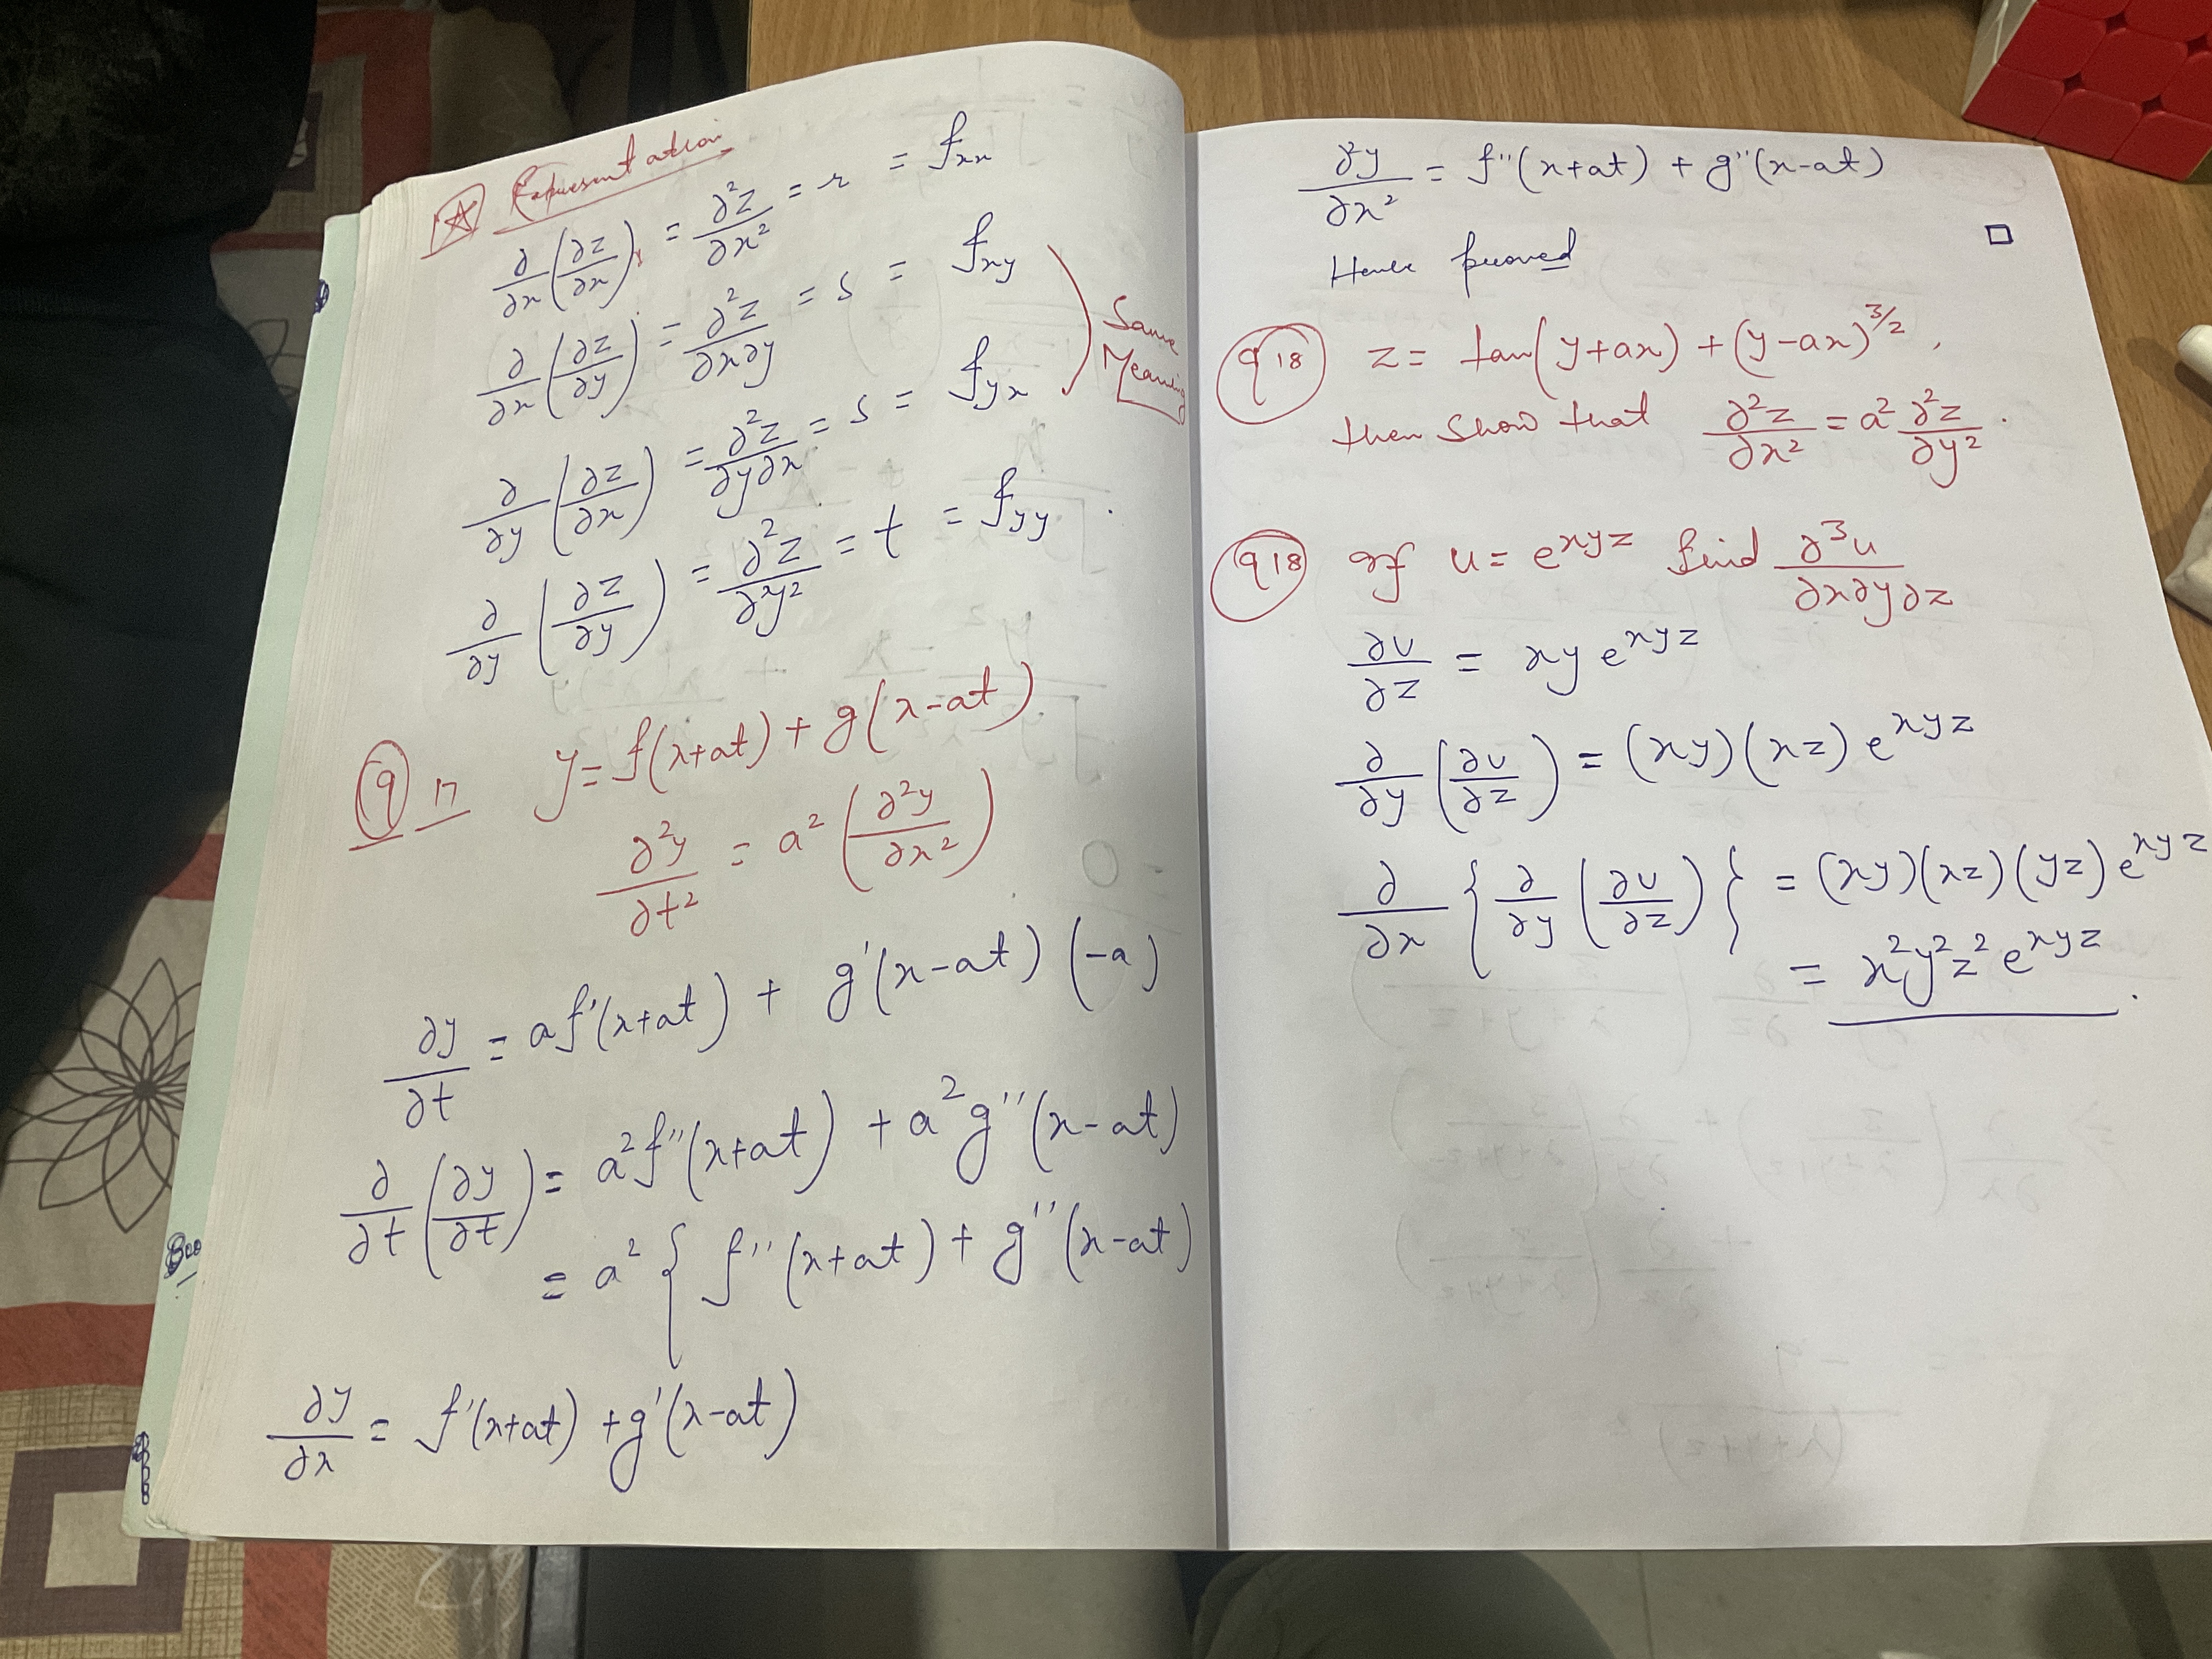 Representation
∂/∂x (∂z/∂x) = ∂²z/∂x² = r = fxx
∂/∂x (∂z/∂y) = ∂²z/∂x∂y = s = fxy
∂/∂y (∂z/∂x) = ∂²z/∂y∂x = s = fyx
Same
Meaning
∂/∂y (∂z/∂y) = ∂²z/∂y² = t = fyy
Q 17 y = f(x+at) + g(x-at)
∂²y/∂t² = a² (∂²y/∂x²)
∂y/∂t = af'(x+at) + g'(x-at) (-a)
∂/∂t (∂y/∂t) = a²f''(x+at) + a²g''(x-at)
= a² { f''(x+at) + g''(x-at)
∂y/∂x = f'(x+at) + g'(x-at)
∂²y/∂x² = f''(x+at) + g''(x-at)
Hence proved □
Q 18 z = tan(y+ax) + (y-ax)^3/2,
then show that ∂²z/∂x² = a² ∂²z/∂y².
Q 18 If u = e^xyz find ∂³u/∂x∂y∂z
∂u/∂z = xy e^xyz
∂/∂y (∂u/∂z) = (xy)(xz) e^xyz
∂/∂x { ∂/∂y (∂u/∂z) } = (xy)(xz)(yz) e^xyz
= x²y²z² e^xyz.